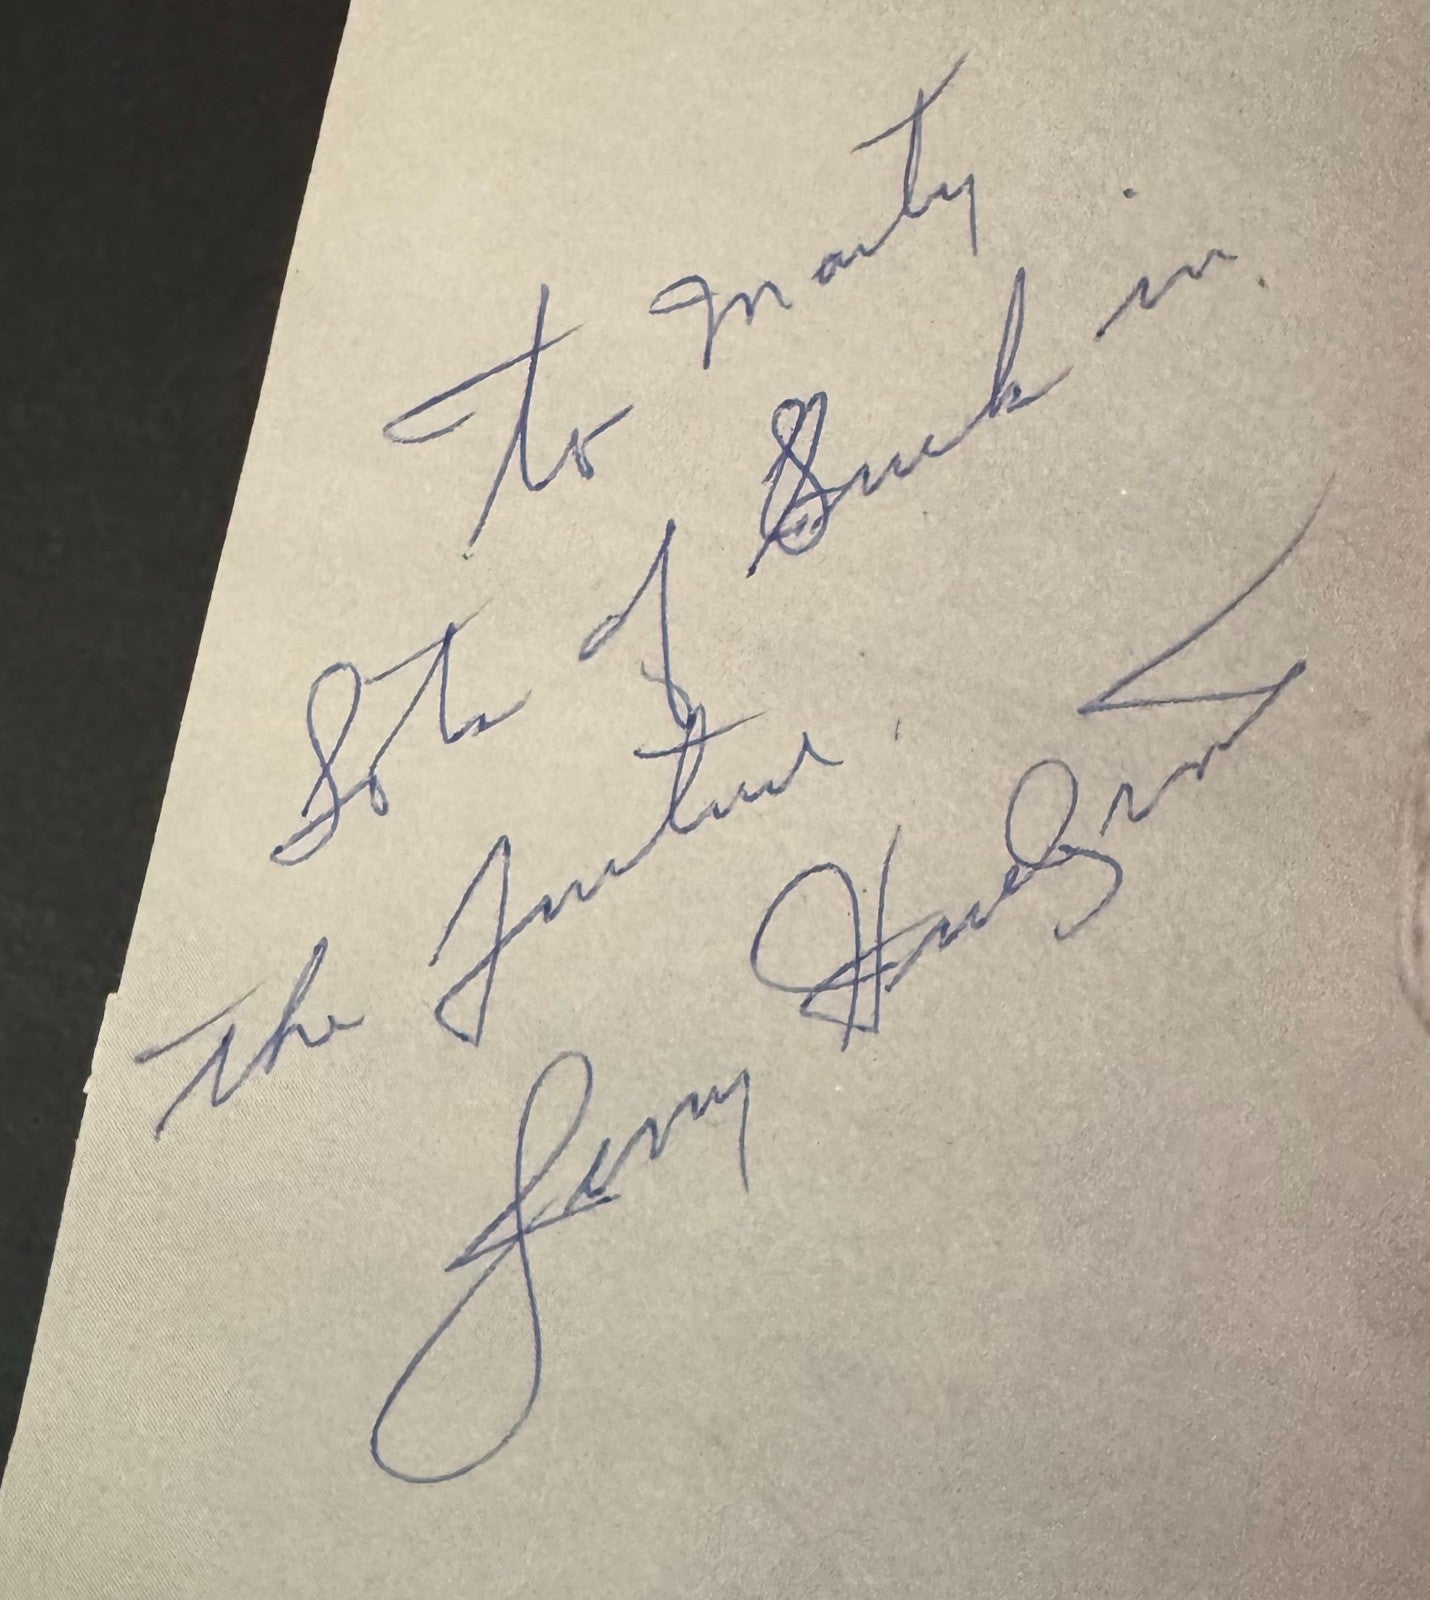 To Marty
Lots of Luck in
the Future.
Larry